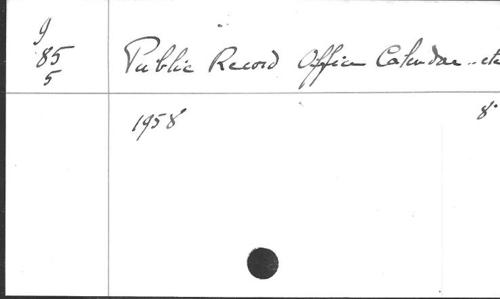 9
85
5
Public Record Office Calendar .. etc
1958 8º